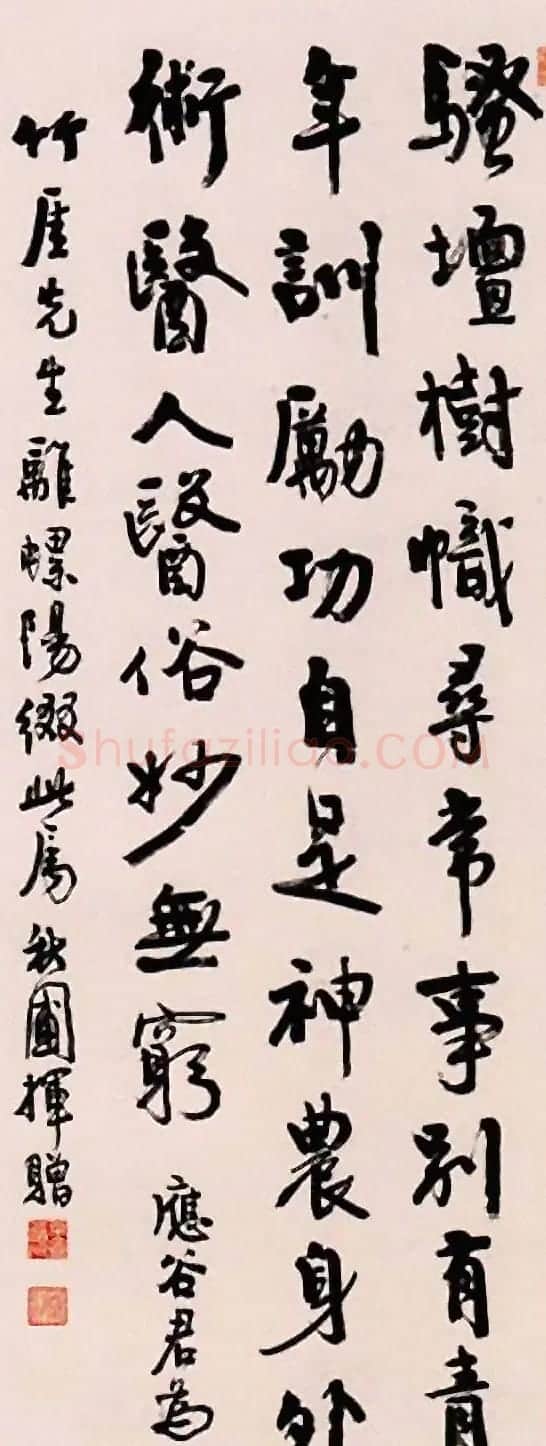 騷壇樹幟尋常事別有青
年訓勵功自是神農身外
術醫人醫俗妙無窮 應谷君為
竹厓先生離螺陽綴此屬秋圃揮贈
shufaziliao.COM